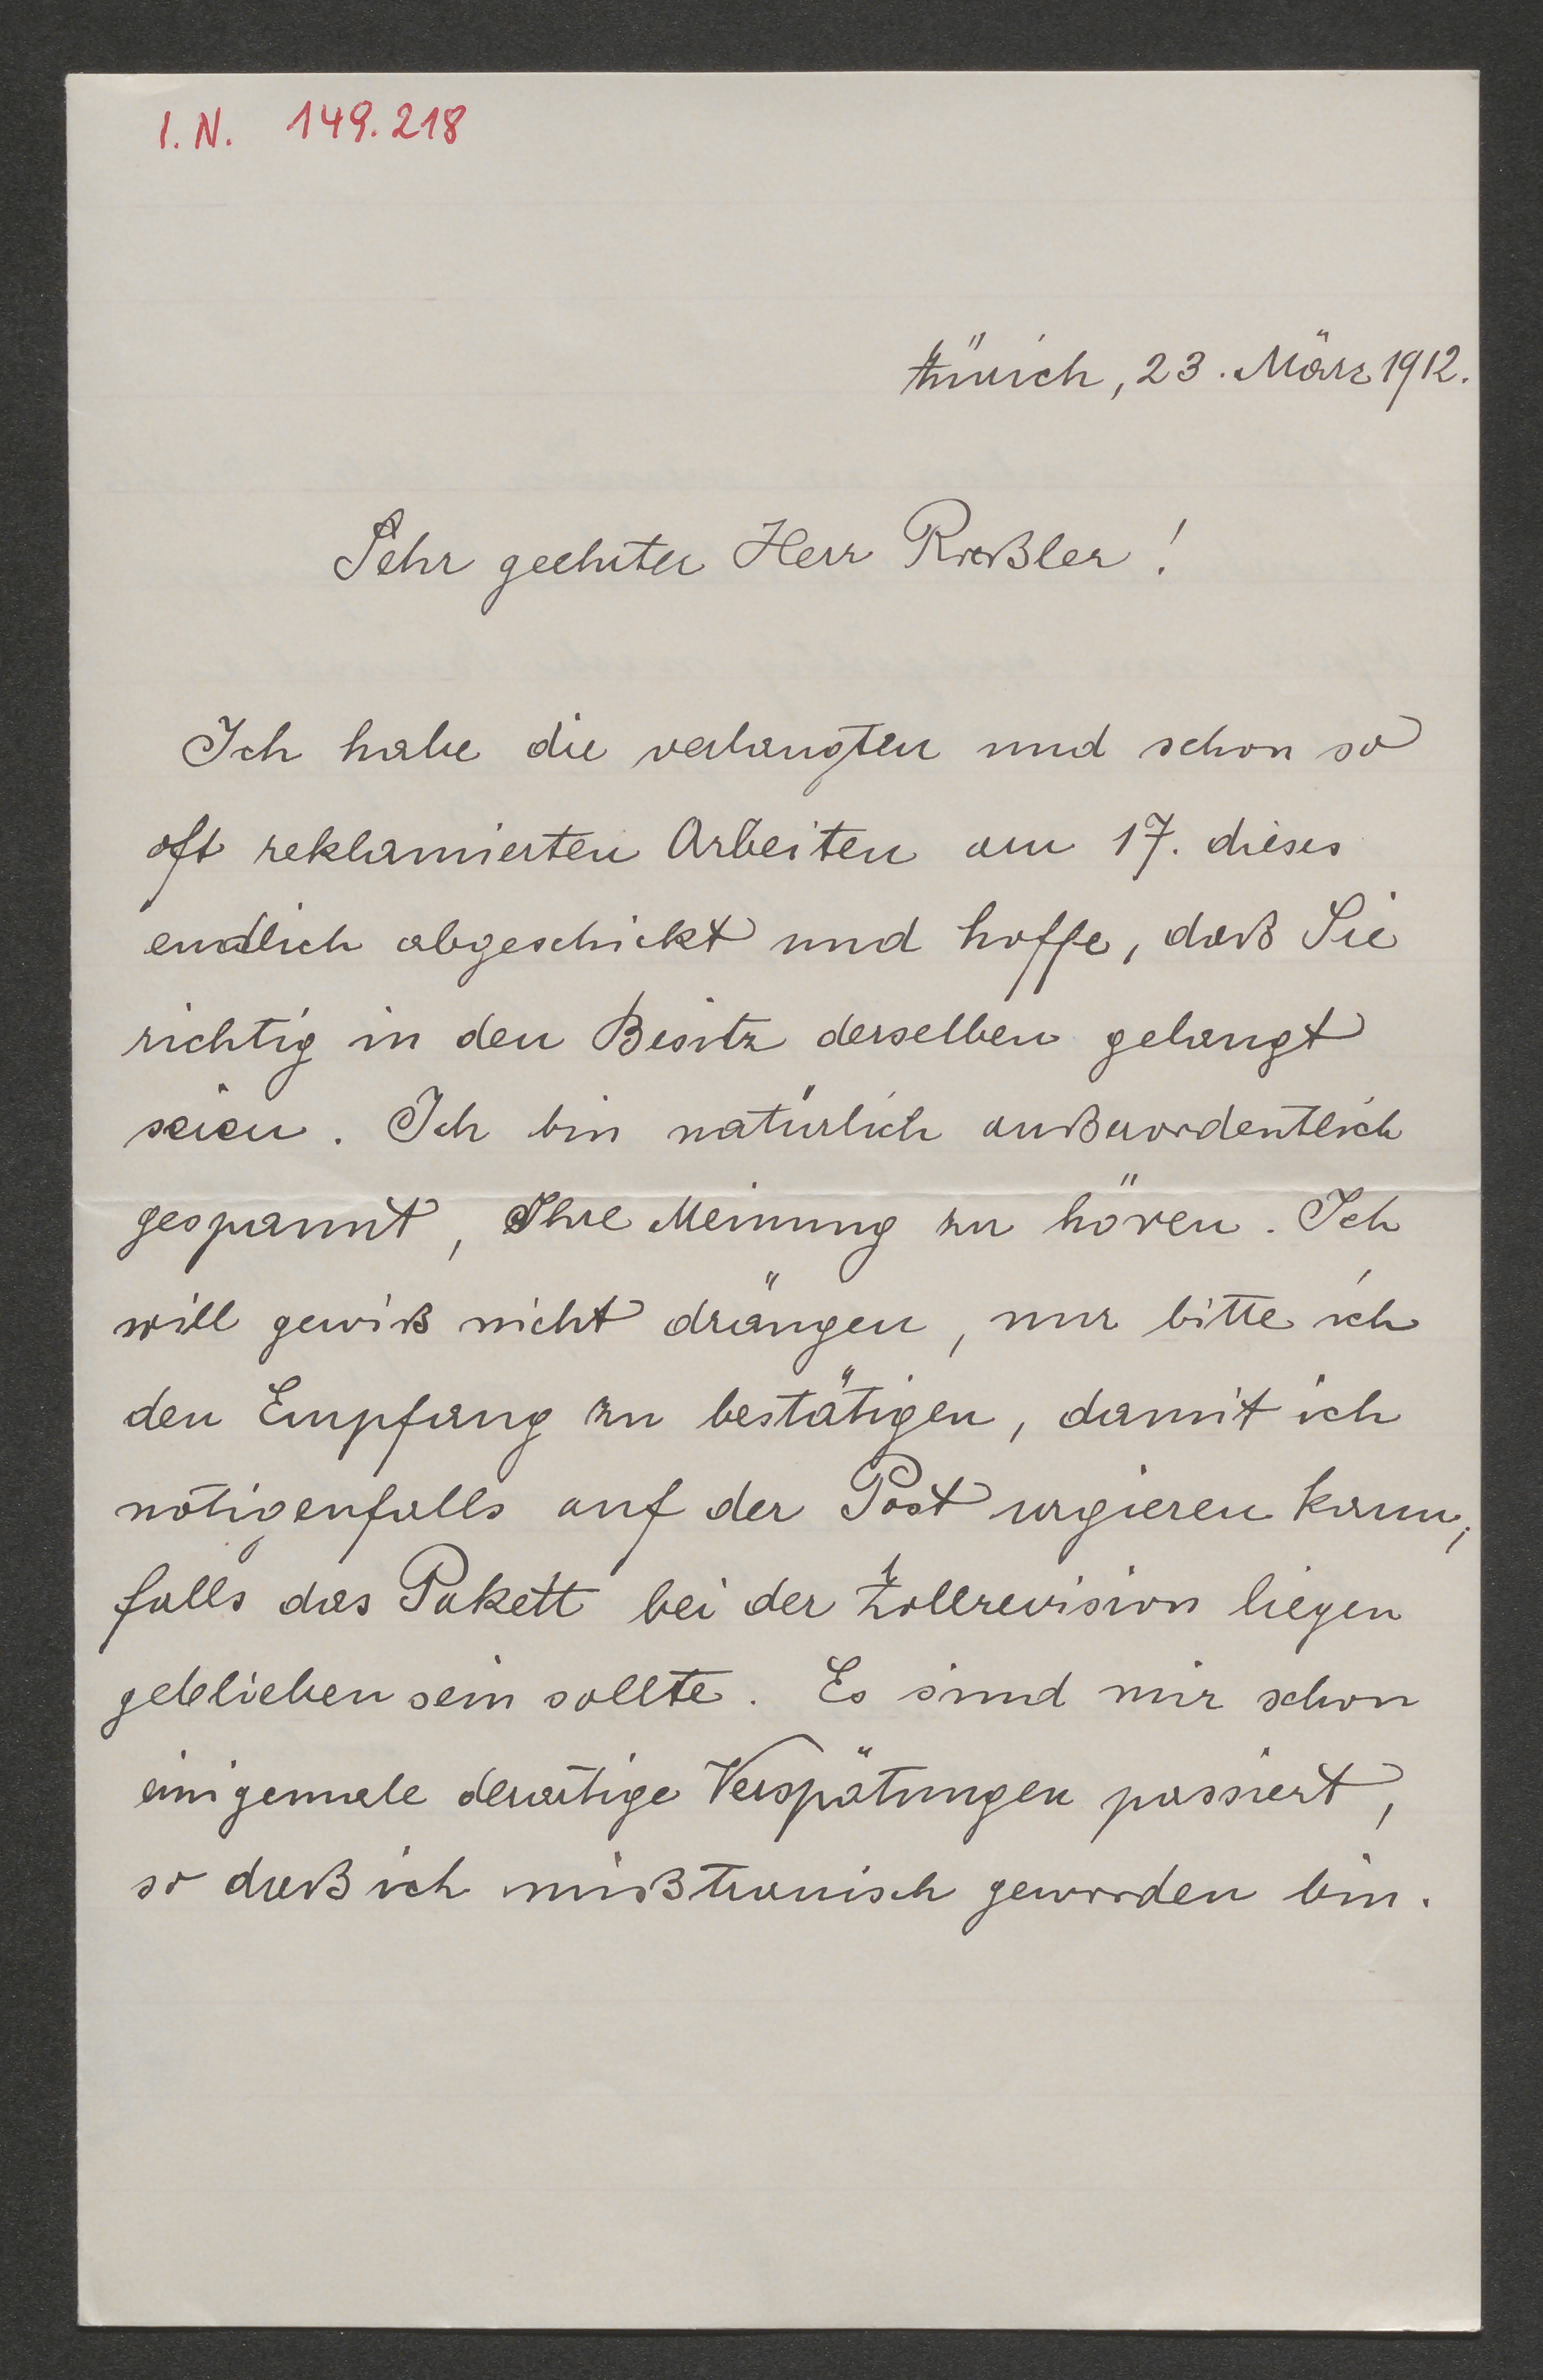 I. N. 149.218
Zürich, 23. März 1912.
Sehr geehrter Herr Roeßler!
Ich habe die verlangten und schon so
oft reklamierten Arbeiten am 17. dieses
endlich abgeschickt und hoffe, daß Sie
richtig in den Besitz derselben gelangt
seien. Ich bin natürlich außerordentlich
gespannt, Ihre Meinung zu hören. Ich
will gewiß nicht drängen, nur bitte ich
den Empfang zu bestätigen, damit ich
nötigenfalls auf der Post urgieren kann,
falls das Pakett bei der Zollrevision liegen
geblieben sein sollte. Es sind mir schon
einigemale derartige Verspätungen passiert,
so daß ich mißtrauisch geworden bin.